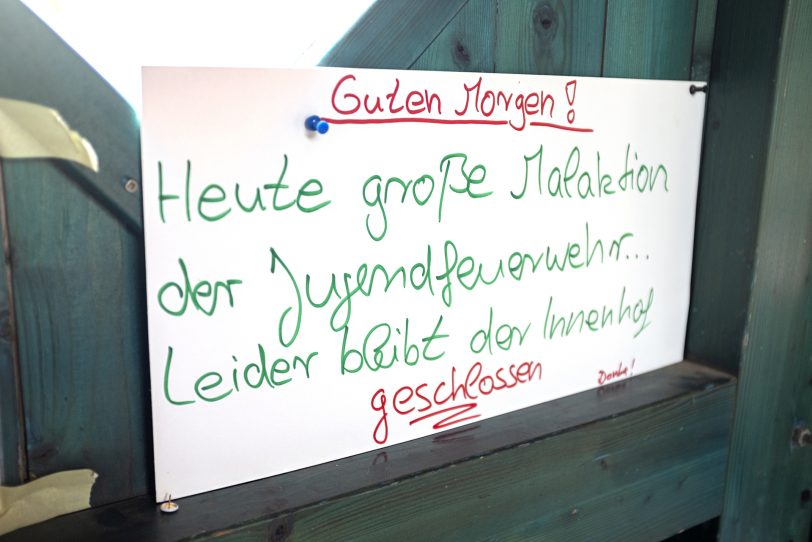 Guten Morgen!
Heute große Malaktion
der Jugendfeuerwehr...
Leider bleibt der Innenhof
geschlossen
Danke!